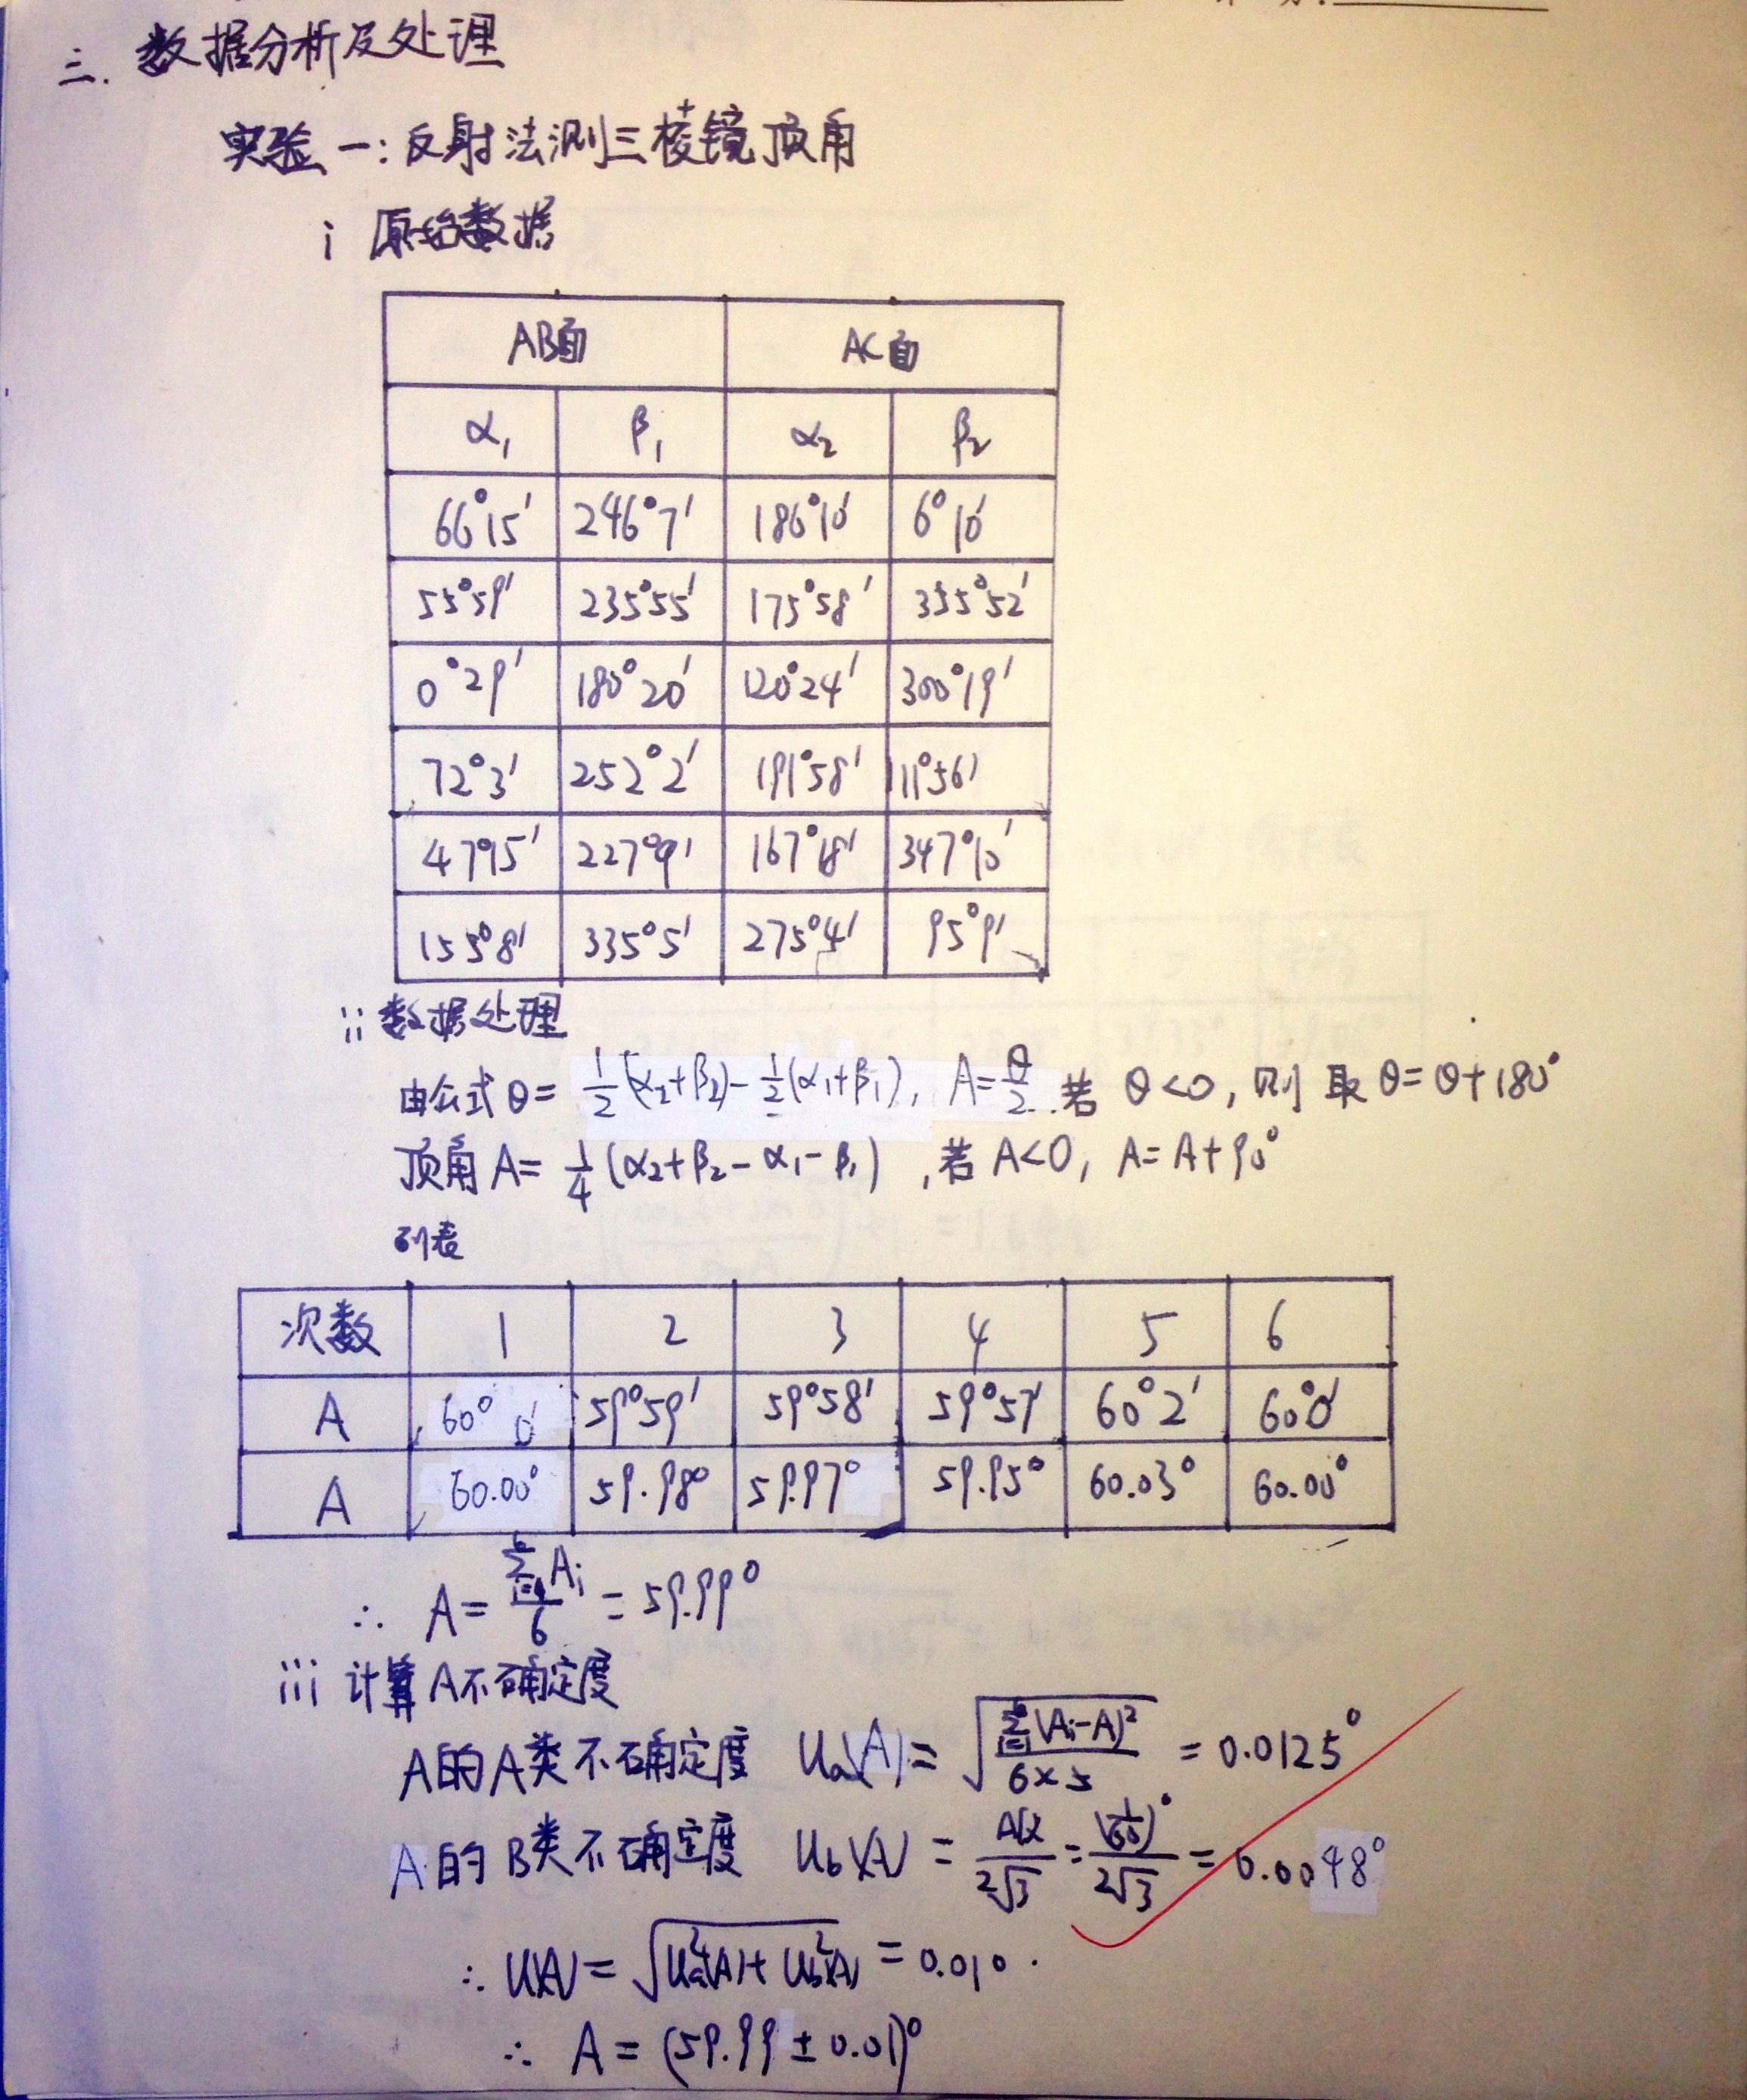 三. 数据分析及处理
实验一:反射法测三棱镜顶角
i 原始数据
AB面 AC面
α₁ β₁ α₂ β₂
66°15′ 246°7′ 186°10′ 6°10′
55°59′ 235°55′ 175°58′ 355°52′
0°29′ 180°20′ 120°24′ 300°19′
72°3′ 252°2′ 191°58′ 11°56′
47°15′ 227°9′ 167°18′ 347°10′
155°8′ 335°5′ 275°4′ 95°9′
ii 数据处理
由公式 θ = 1/2(α₂+β₂) - 1/2(α₁+β₁), A = θ/2. 若 θ<0, 则取 θ=θ+180°
顶角 A = 1/4 (α₂+β₂-α₁-β₁), 若 A<0, A=A+90°
列表
次数 1 2 3 4 5 6
A 60°0′ 59°59′ 59°58′ 59°57′ 60°2′ 60°0′
A 60.00° 59.98° 59.97° 59.95° 60.03° 60.00°
∴ A = ∑Ai/6 = 59.99°
iii 计算A不确定度
A的A类不确定度 Ua(A) = √(∑(Ai-A)²/(6×5)) = 0.0125°
A的B类不确定度 Ub(A) = /(2√3) = (1/60)°/(2√3) = 0.0048°
∴ U(A) = √(Ua²(A)+Ub²(A)) = 0.010.
∴ A = (59.99 ± 0.01)°